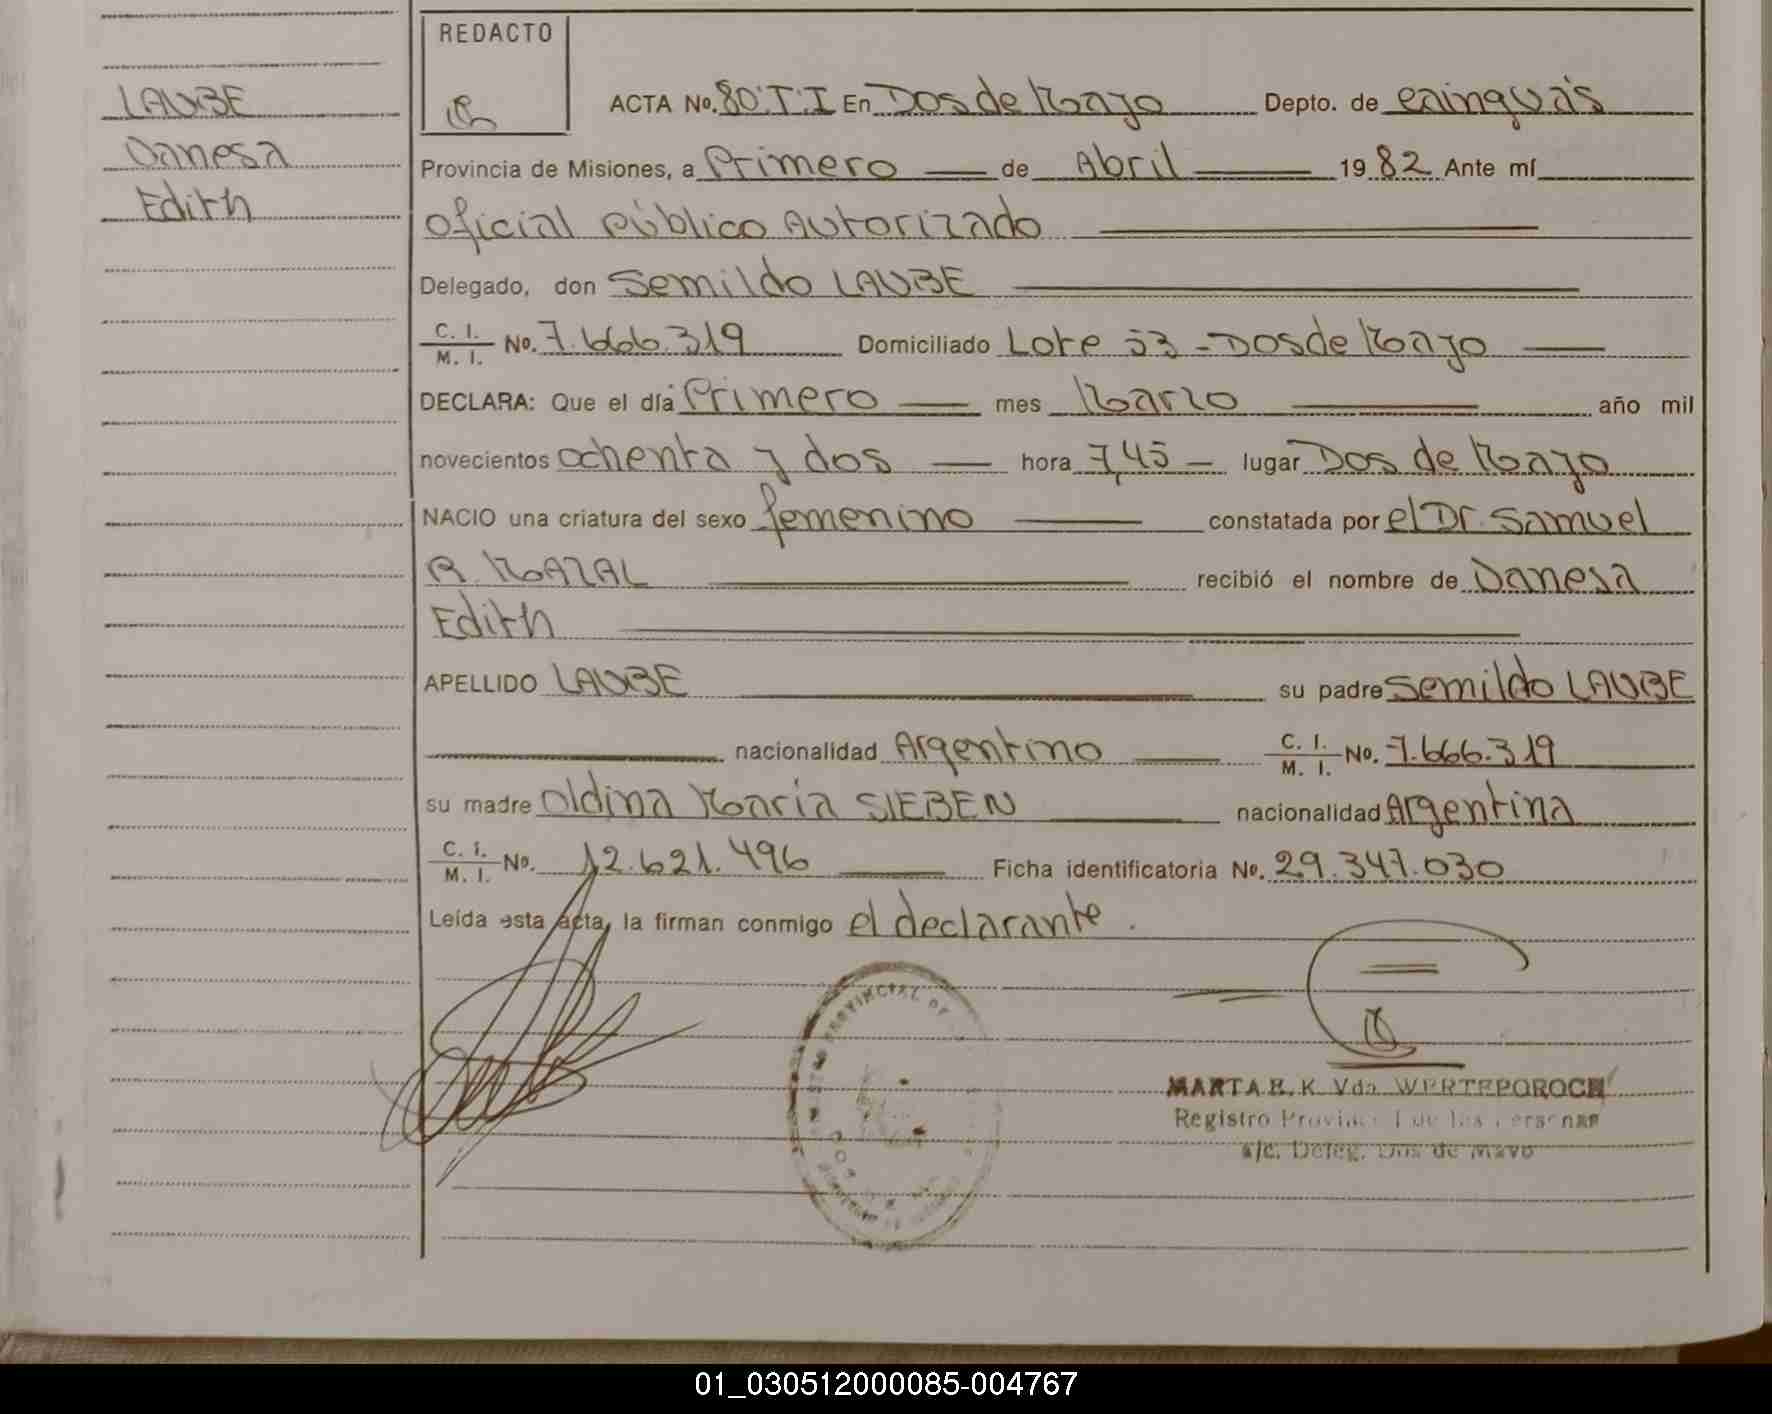 LAUBE
Danesa
Edith
REDACTO
ACTA No. 80.T.I En Dos de Mayo Depto. de Cainguás
Provincia de Misiones, a Primero de Abril 1982 Ante mí
Oficial Público Autorizado
Delegado, don Semildo LAUBE
C. I. / M. I. No. 7.666.319 Domiciliado Lote 53 - Dos de Mayo
DECLARA: Que el día Primero mes Marzo año mil
novecientos ochenta y dos hora 7,45 lugar Dos de Mayo
NACIO una criatura del sexo femenino constatada por el Dr. Samuel
R. MAZAL recibió el nombre de Danesa
Edith
APELLIDO LAUBE su padre Semildo LAUBE
nacionalidad Argentino C. I. / M. I. No. 7.666.319
su madre Oldina María SIEBEN nacionalidad Argentina
C. I. / M. I. No. 12.621.496 Ficha identificatoria No. 29.347.030
Leída esta acta, la firman conmigo el declarante.
PROVINCIAL DE
MARTA E. K. Vda. WERTEPOROCH
Registro Provincial de las Personas
a/c. Deleg. Dos de Mayo
01_030512000085-004767